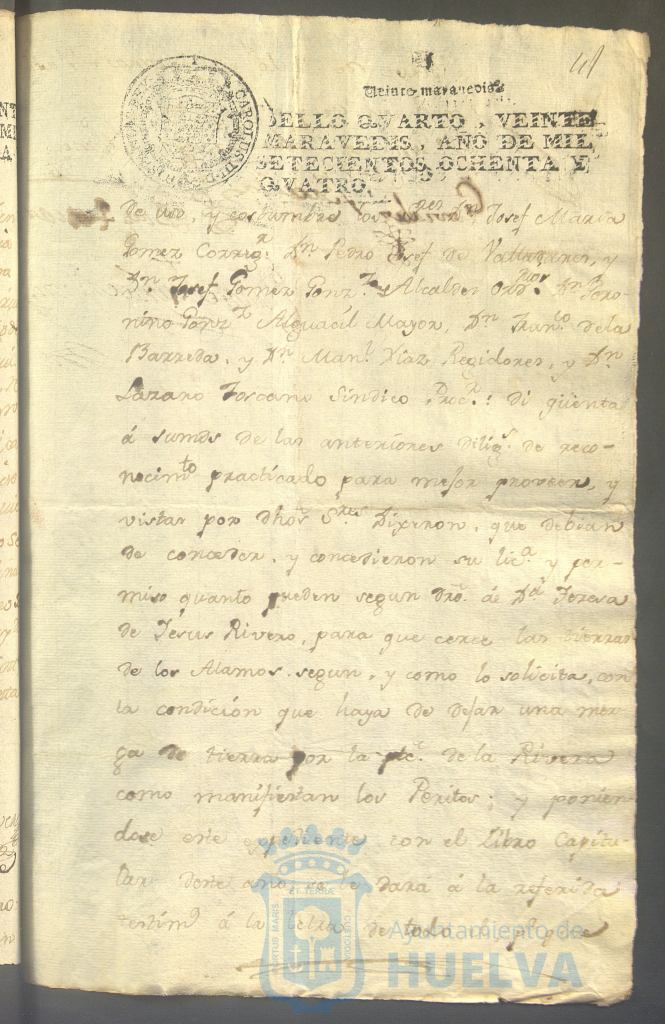 41
Veinte maravedis
SELLO QVARTO, VEINTE
MARAVEDIS, AÑO DE MIL
SETECIENTOS OCHENTA Y
QVATRO.
CAROLUS
De uso, y costumbre los Sres Dn Josef Maria
Gomez Corregr. Dn Pedro Josef de Valladares, y
Dn Josef Gomez Gonzz Alcaldes Ordrios Dn Gero-
nimo Gonzz Alguacil Mayor, Dn Franco de la
Barreda, y Dn Manl Diaz Regidores, y Dn
Lazaro Toscano Sindico Procr: di qüenta
á sumds de las anteriores diligs de reco-
nocimto practicado para mejor proveer, y
vistas por dhos Sres Dixeron, que debian
de conceder, y concedieron su lica y per-
miso quanto pueden segun dro. á Da Teresa
de Jesus Rivero, para que cerce las tierras
de los Alamos segun, y como lo solicita, con
la condición que haya de dejar una mar-
ga de tierra por la pte. de la Rivera
como manifiestan los Peritos; y ponien-
dose este expediente con el Libro Capitu-
lar deste año, se le dará á la referida
testimo á la letra de todo
PORTUS MARIS ET TERRAE CUSTODIA
Ayuntamiento de
HUELVA